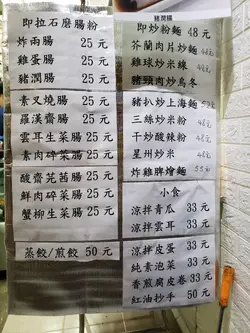 豬潤腸
即拉石磨腸粉
炸兩腸 25 元
雞蛋腸 25 元
豬潤腸 25 元
素叉燒腸 25 元
羅漢齋腸 25 元
雲耳生菜腸 25 元
素肉碎菜腸 25 元
酸齋芫茜腸 25 元
鮮肉碎菜腸 25 元
蟹柳生菜腸 25 元
蒸餃/煎餃 50 元
即炒粉麵 48 元
芥蘭肉片炒麵
雞球炒米線
豬頸肉炒烏冬
豬扒炒上海麵
三絲炒米粉
干炒酸辣粉
星州炒米
炸雞脾燴麵
小食
涼拌青瓜 33 元
涼拌雲耳 33 元
涼拌皮蛋 33 元
純素泡菜 33 元
香煎腐皮卷 33 元
紅油抄手 50 元